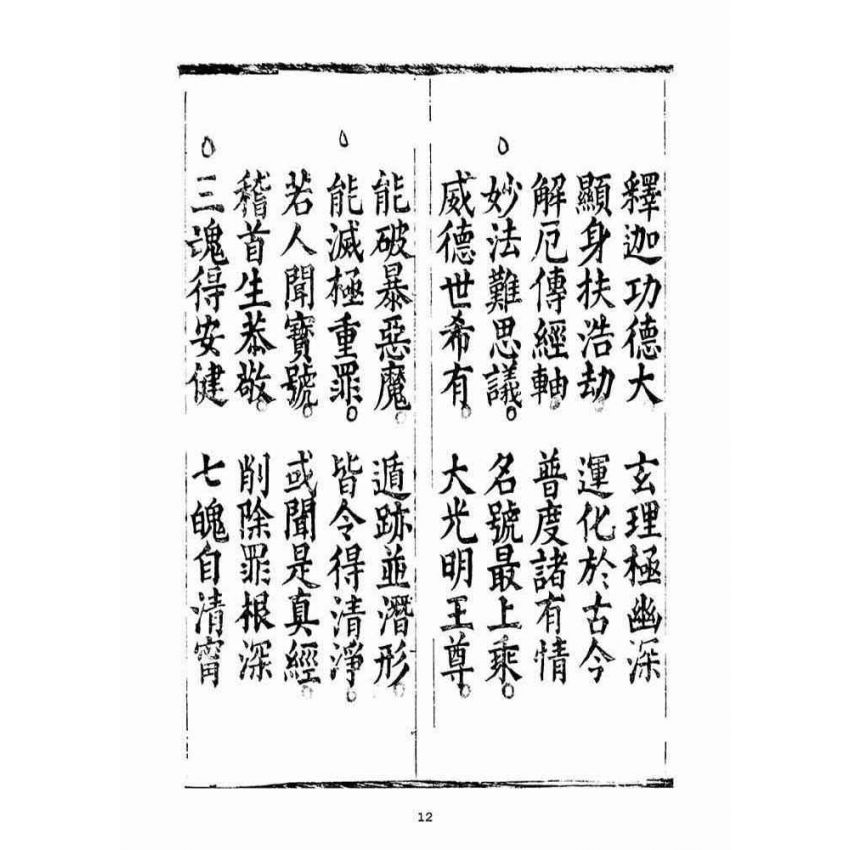 釋迦功德大 玄理極幽深
顯身扶浩劫 運化於古今
解厄傳經軸 普度諸有情
妙法難思議 名號最上乘
威德世希有 大光明王尊
能破暴惡魔 遁跡並潛形
能滅極重罪 皆令得清淨
若人聞寶號 或聞是真經
稽首生恭敬 削除罪根深
三魂得安健 七魄自清甯
12